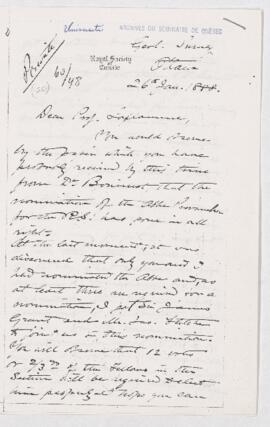 Université
ARCHIVES DU SÉMINAIRE DE QUÉBEC
Private
Geol. Survey
Royal Society of Canada
Ottawa
26th Jan.
Dear Prof. Laflamme,
You would
by the which you have
probably received by this time
from Dr Bourinot, that the
nomination of the Abbé
for the R.S. has gone in all
right.
At the last moment, it was
discovered that only you and I
had nominated the Abbé and as
at least three are required for a
nomination, I got Sir James
Grant and Mr. Jas. Fletcher
to join us in this nomination.
You will that 12 votes
or 2/3rds of the Fellows in the
Section will be required to elect
you can